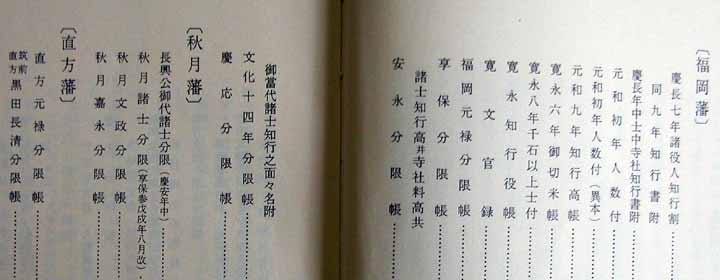 〔福岡藩〕
慶長七年諸役人知行割
同九年知行書附
慶長年中士中寺社知行書附
元和初年人数付
元和初年人数付（異本）
元和九年知行高帳
寛永六年御切米帳
寛永八年千石以上士付
寛永知行役帳
寛文官録
福岡元禄分限帳
享保分限帳
諸士知行高幷寺社料高共
安永分限帳
御當代諸士知行之面々名附
文化十四年分限帳
慶応分限帳
〔秋月藩〕
長興公御代諸士分限（慶安年中）
秋月諸士分限（享保参戊戌年八月改）
秋月文政分限帳
秋月嘉永分限帳
〔直方藩〕
直方元禄分限帳
筑前直方黒田長清分限帳